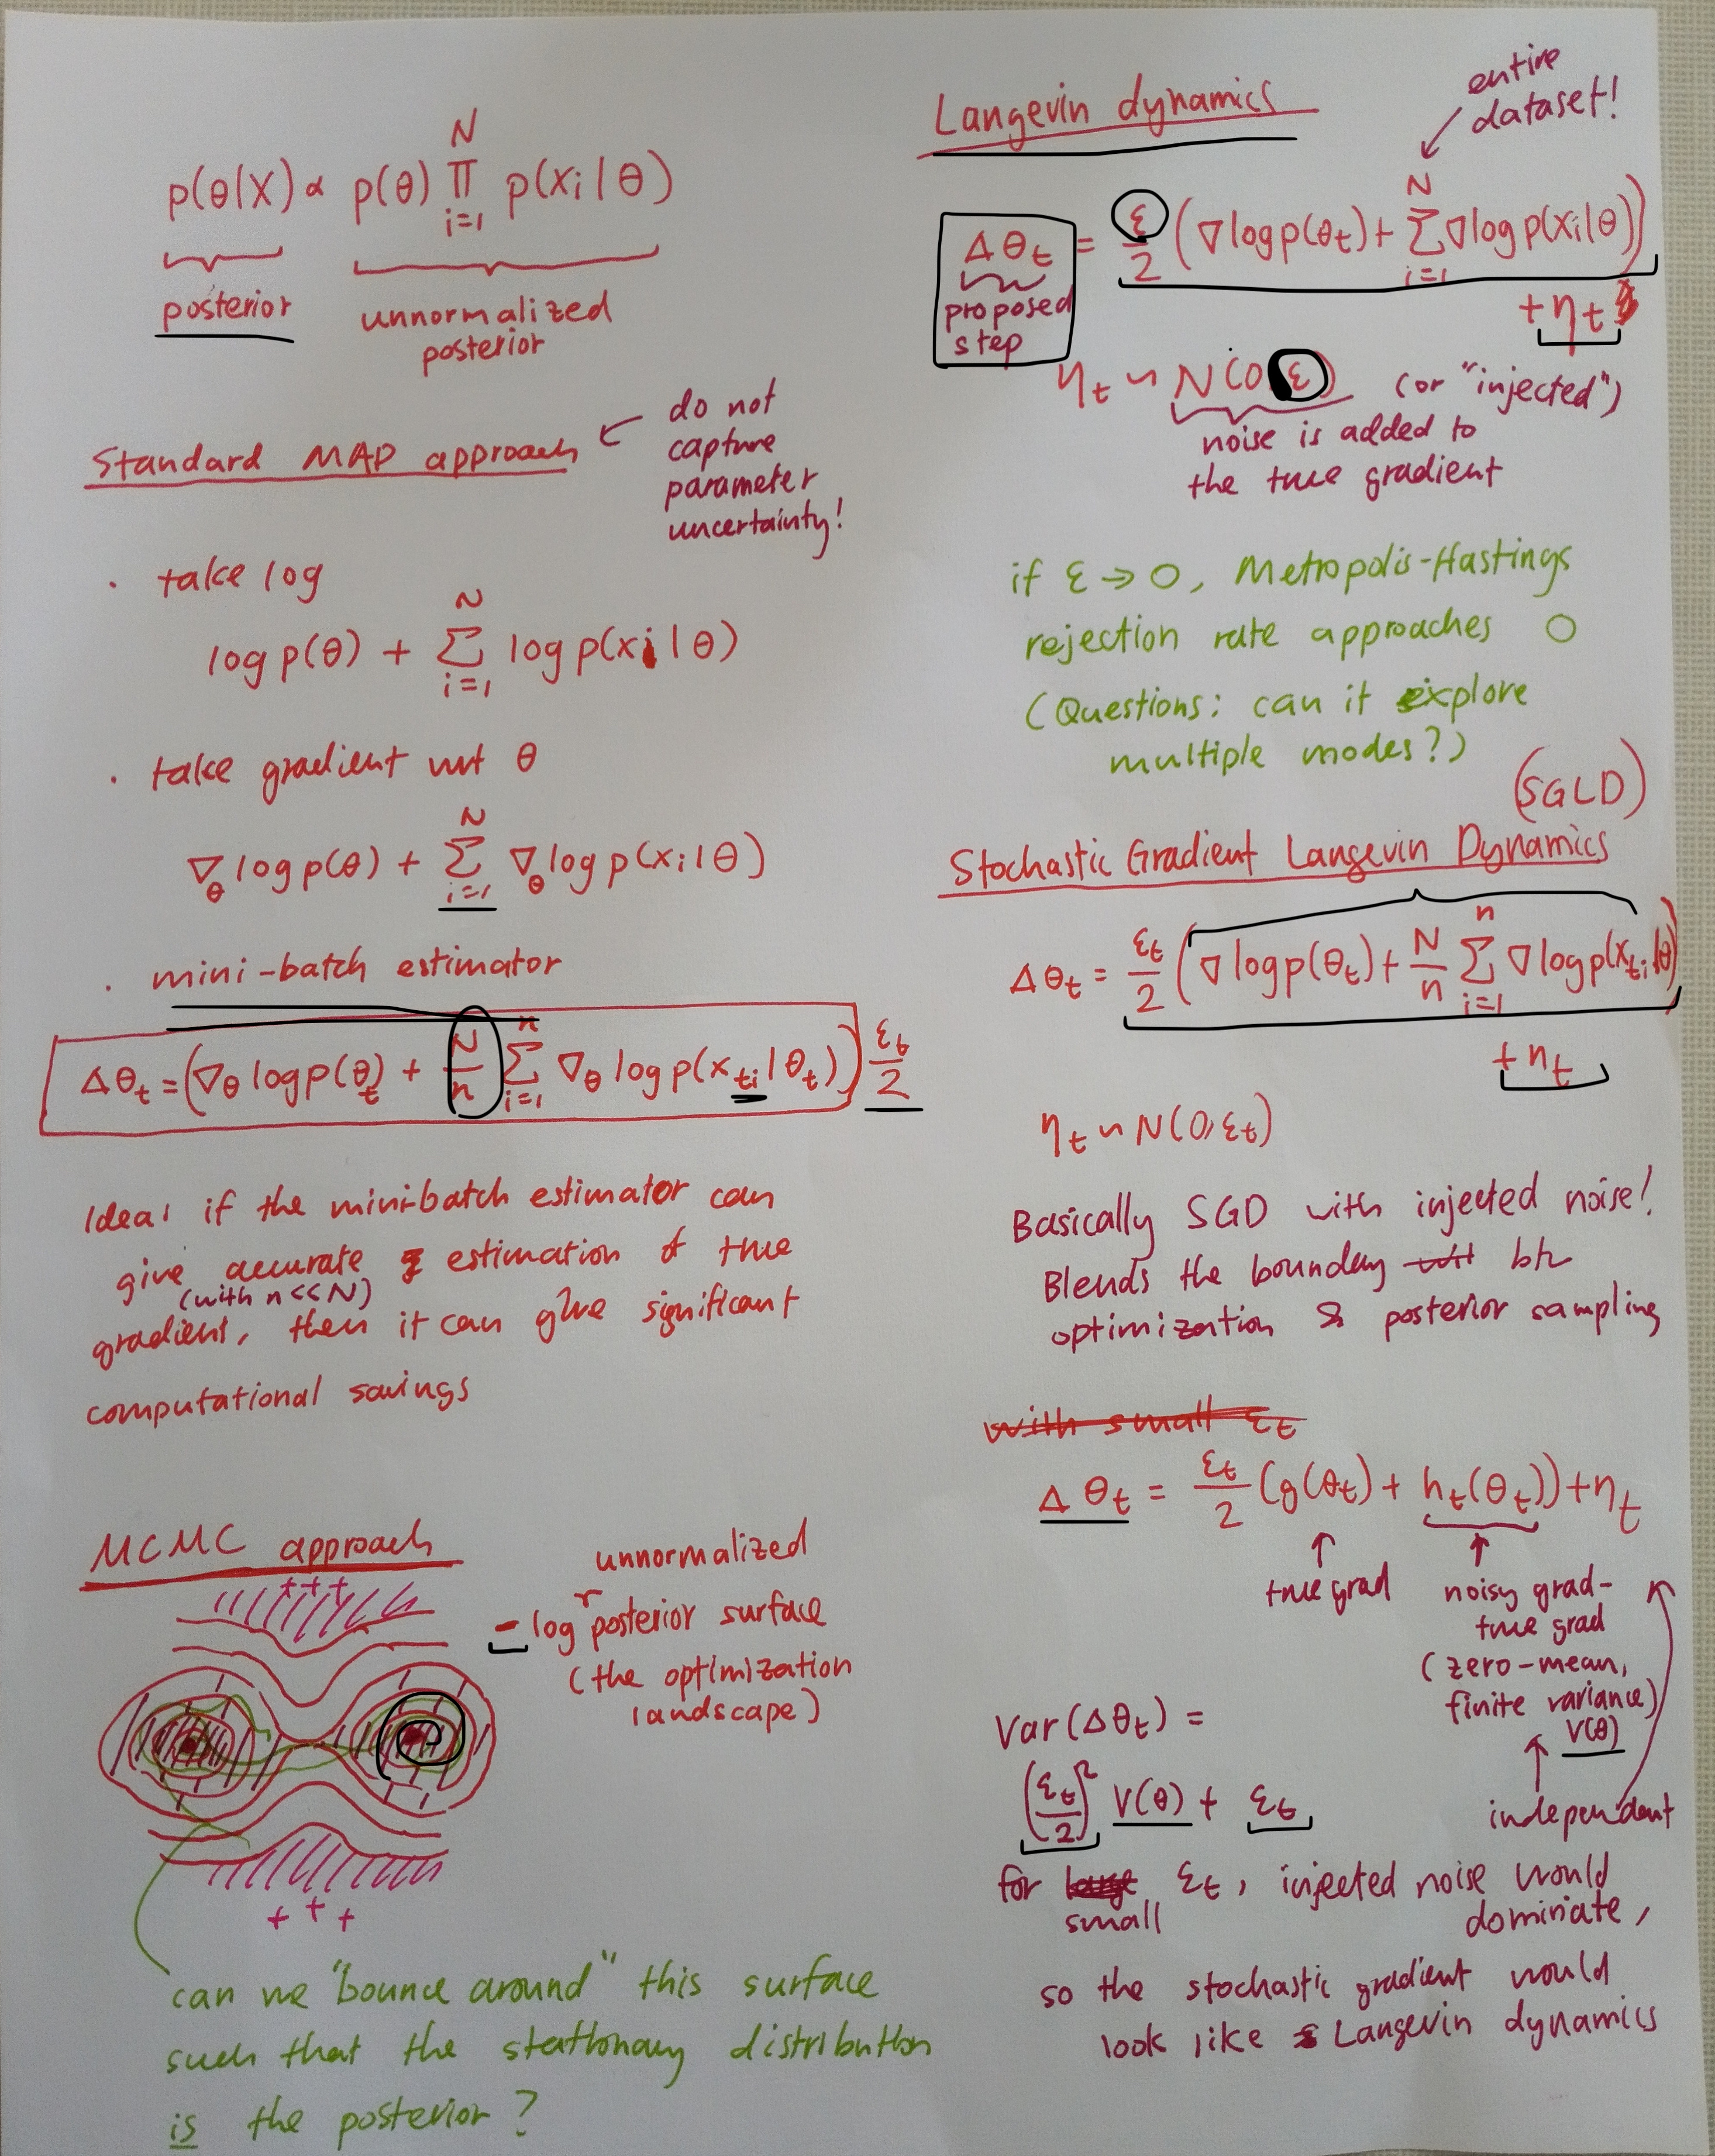 p(θ|X) ∝ p(θ) N Π i=1 p(xi|θ)
posterior
unnormalized
posterior
Standard MAP approach
do not
capture
parameter
uncertainty!
· take log
log p(θ) + N Σ i=1 log p(xi|θ)
· take gradient wrt θ
∇θ log p(θ) + N Σ i=1 ∇θ log p(xi|θ)
· mini-batch estimator
Δθt = (∇θ log p(θt) + N/n n Σ i=1 ∇θ log p(xti|θt)) εt/2
Idea: if the mini-batch estimator can
give accurate estimation of true
(with n<<N)
gradient, then it can give significant
computational savings
MCMC approach
+++
unnormalized
- log posterior surface
(the optimization
landscape)
+ + +
can we "bounce around" this surface
such that the stationary distribution
is the posterior?
Langevin dynamics
entire
dataset!
Δθt = ε/2 (∇log p(θt) + N Σ i=1 ∇log p(xi|θ))
+ ηt
proposed
step
ηt ~ N(0, ε) (or "injected")
noise is added to
the true gradient
if ε → 0, Metropolis-Hastings
rejection rate approaches 0
(Questions: can it explore
multiple modes?)
(SGLD)
Stochastic Gradient Langevin Dynamics
Δθt = εt/2 (∇log p(θt) + N/n n Σ i=1 ∇log p(xti|θ)
+ ηt
ηt ~ N(0, εt)
Basically SGD with injected noise!
Blends the boundary btw
optimization & posterior sampling
with small εt
Δθt = εt/2 (g(θt) + ht(θt)) + ηt
true grad
noisy grad-
true grad
(zero-mean,
finite variance)
V(θ)
independent
Var(Δθt) =
(εt/2)² V(θ) + εt
for large εt, injected noise would
small
dominate,
so the stochastic gradient would
look like Langevin dynamics